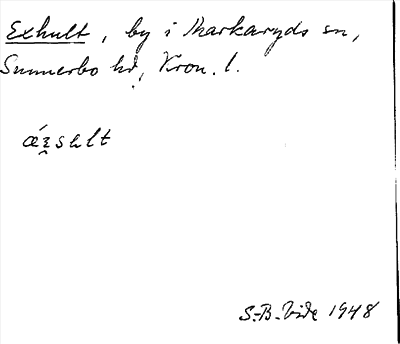 Exhult, by i Markaryds sn,
Sunnerbo hd, Kron. l.
S.-B. Vide 1948